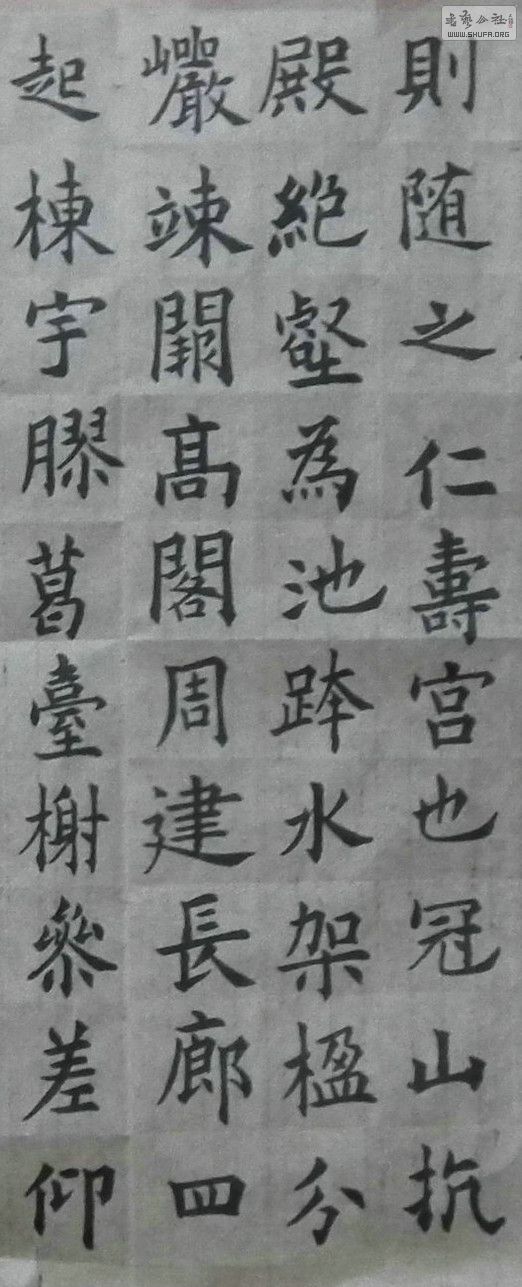 則随之仁壽宮也冠山抗
殿絕壑為池跨水架楹分
巗竦闕高閣周建長廊四
起棟宇膠葛臺榭參差仰
WWW.SHUFA.ORG